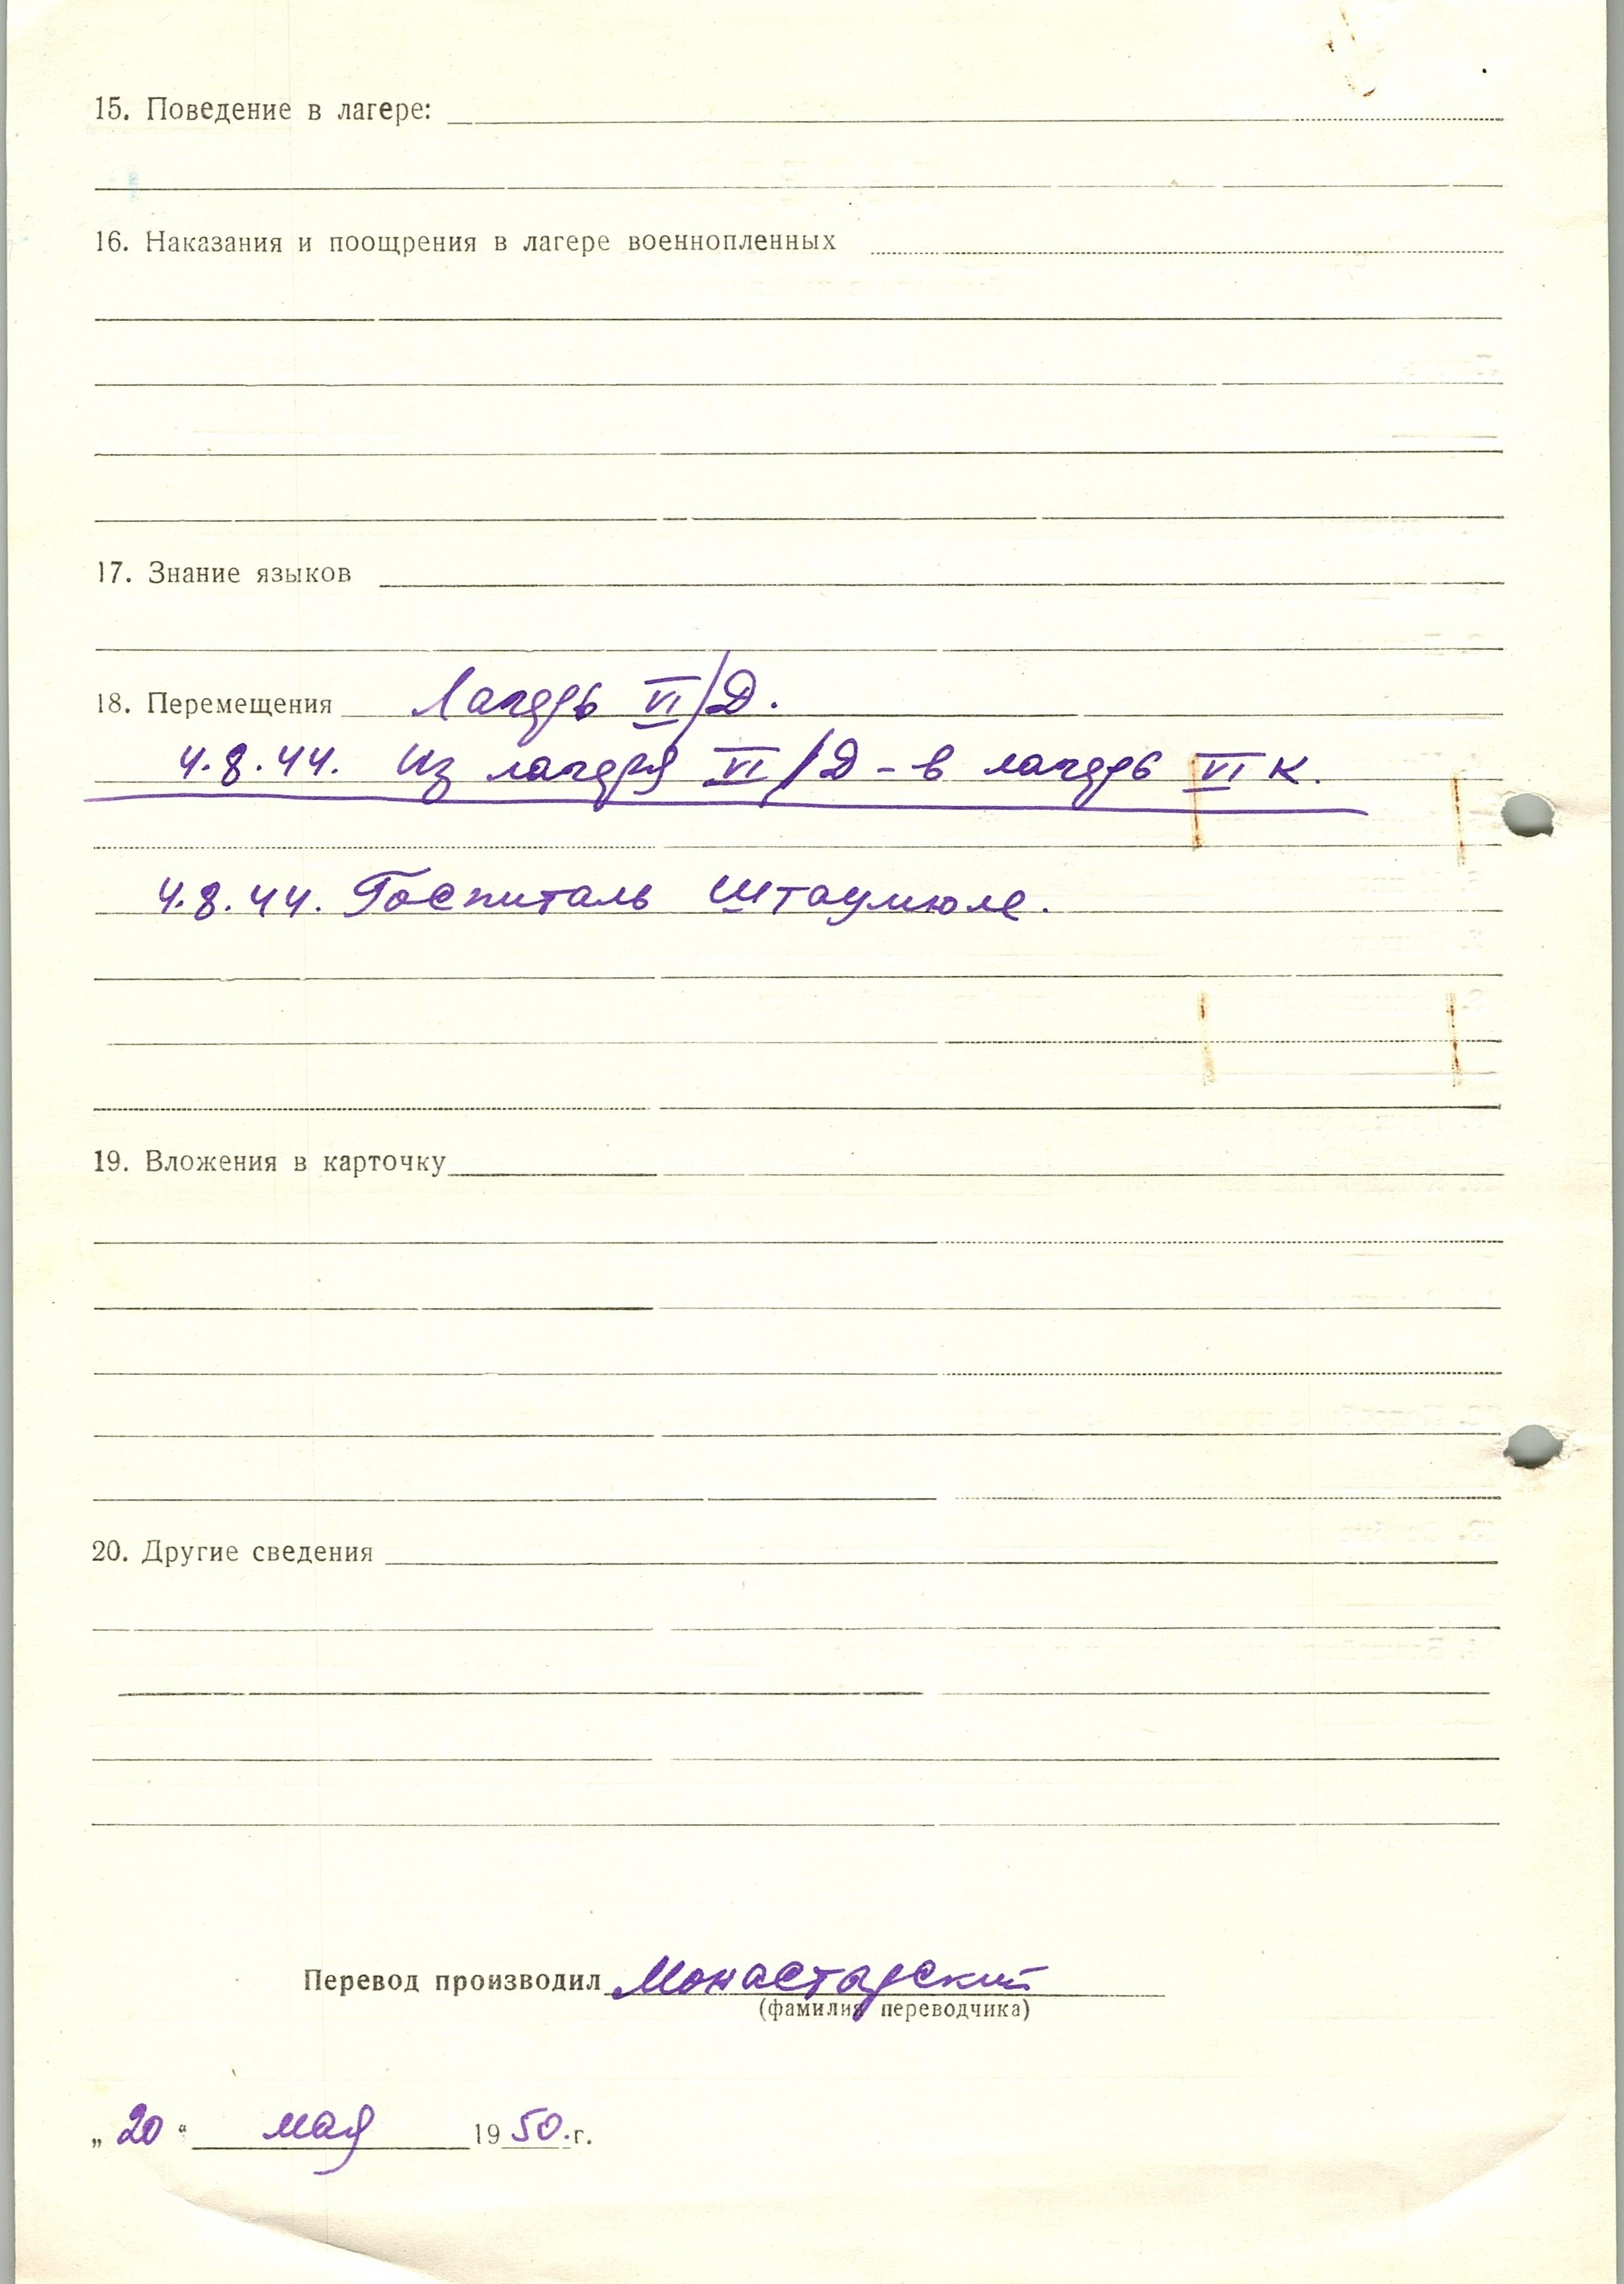 15. Поведение в лагере:
16. Наказания и поощрения в лагере военнопленных
17. Знание языков
18. Перемещения Лагерь VI/Д.
4.8.44. Из лагеря VI/Д - в лагерь VI К.
4.8.44. Госпиталь Штаумюле.
19. Вложения в карточку
20. Другие сведения
Перевод производил Монастарский
(фамилия переводчика)
„ 20 “ мая 1950. г.